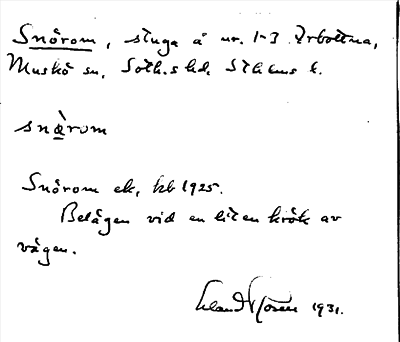 Snörom, stuga å nr. 1-3 Arbottna,
Muskö sn, Soth.s hd, Sthlms l.
snø̀rum
Snörom ek, kb 1925.
Belägen vid en liten krök av
vägen.
1931.